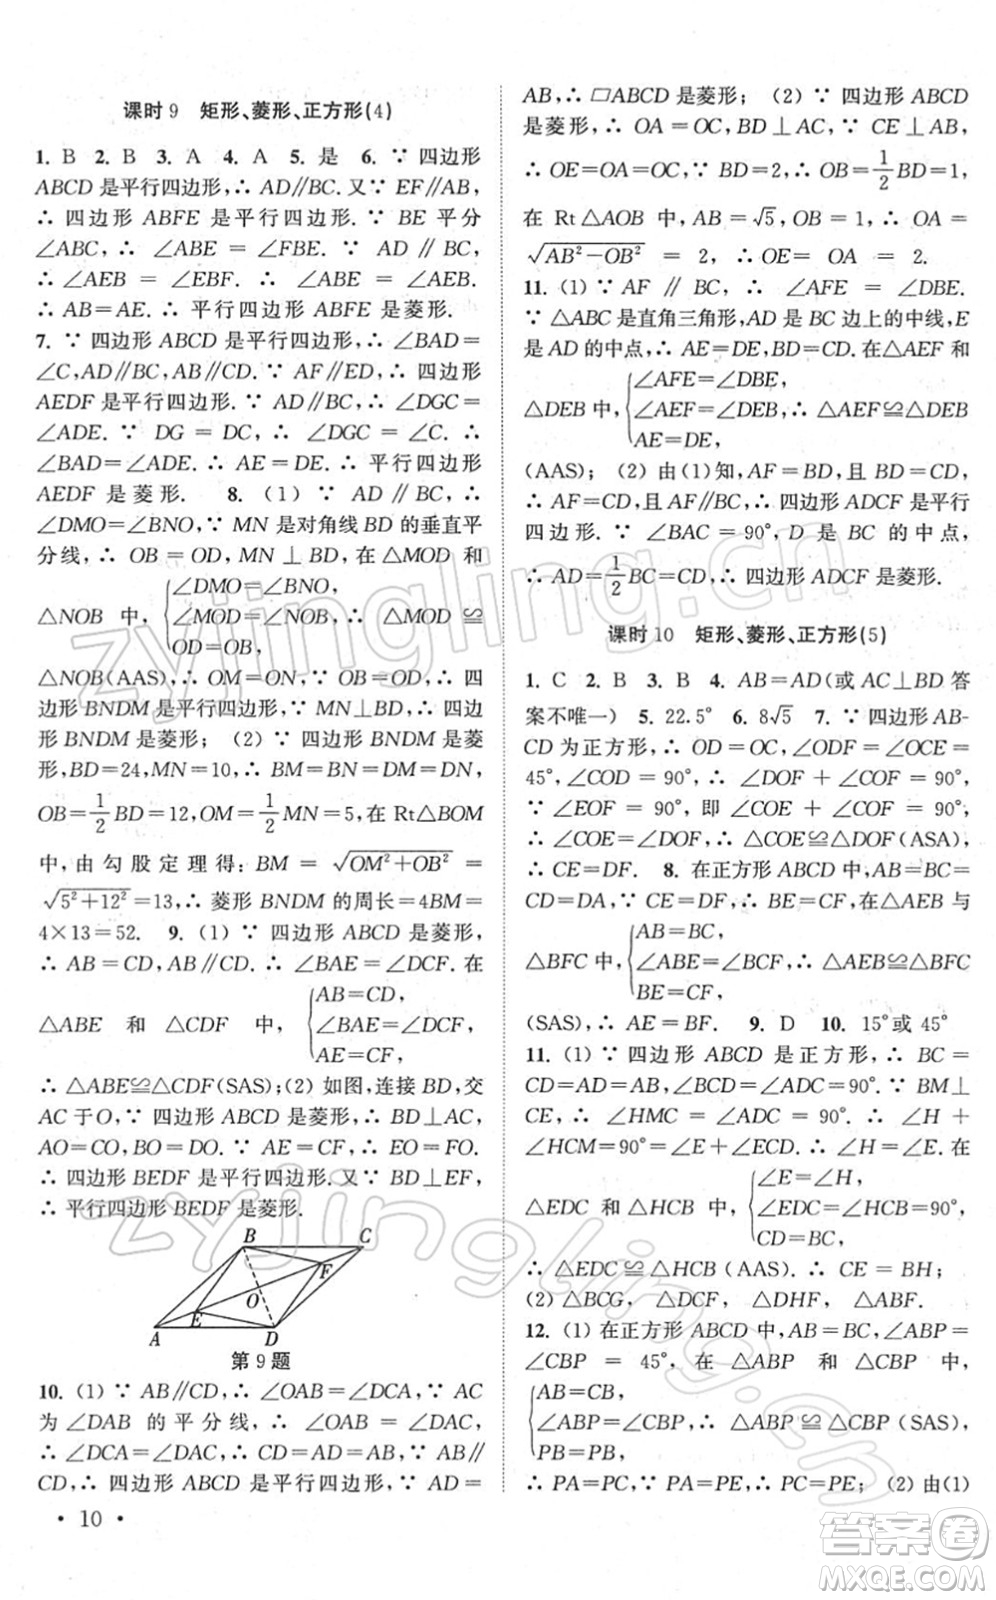 课时9 矩形、菱形、正方形(4)
1. B 2. B 3. A 4. A 5. 是 6. ∵ 四边形
ABCD 是平行四边形,∴ AD∥BC. 又∵ EF∥AB,
∴ 四边形 ABFE 是平行四边形. ∵ BE 平分
∠ABC, ∴ ∠ABE = ∠FBE. ∵ AD ∥ BC,
∴ ∠AEB = ∠EBF. ∴ ∠ABE = ∠AEB.
∴ AB=AE. ∴ 平行四边形 ABFE 是菱形.
7. ∵ 四边形 ABCD 是平行四边形,∴ ∠BAD=
∠C,AD∥BC. ∵ AF∥ED,∴ 四边形
AEDF 是平行四边形. ∵ AD∥BC,∴ ∠DGC=
∠ADE. ∵ DG = DC, ∴ ∠DGC = ∠C. ∴
∠BAD=∠ADE. ∴ AE=DE. ∴ 平行四边形
AEDF 是菱形. 8. (1) ∵ AD∥BC, ∴
∠DMO=∠BNO,∵ MN 是对角线 BD 的垂直平
分线,∴ OB=OD,MN⊥BD,在△MOD 和
△NOB 中,{∠DMO=∠BNO,
∠MOD=∠NOB, ∴ △MOD≌
OD=OB,
△NOB(AAS),∴ OM=ON,∵ OB=OD,∴ 四
边形 BNDM 是平行四边形,∵ MN⊥BD,∴ 四边
形 BNDM 是菱形; (2) ∵ 四边形 BNDM 是菱
形,BD=24,MN=10,∴ BM=BN=DM=DN,
OB=1/2 BD=12,OM=1/2 MN=5,在 Rt△BOM
中,由勾股定理得: BM = √(OM²+OB²) =
√(5²+12²)=13,∴ 菱形 BNDM 的周长=4BM=
4×13=52. 9. (1) ∵ 四边形 ABCD 是菱形,
∴ AB=CD,AB∥CD,∴ ∠BAE=∠DCF. 在
△ABE 和 △CDF 中,{AB=CD,
∠BAE=∠DCF,
AE=CF,
∴ △ABE≌△CDF(SAS);(2) 如图,连接 BD,交
AC 于 O,∵ 四边形 ABCD 是菱形,∴ BD⊥AC,
AO=CO,BO=DO. ∵ AE=CF,∴ EO=FO.
∴ 四边形 BEDF 是平行四边形. ∵ BD⊥EF,
∴ 平行四边形 BEDF 是菱形.
B C
F
O
E
A D
第9题
10. (1) ∵ AB∥CD,∴ ∠OAB=∠DCA,∵ AC
为∠DAB 的平分线,∴ ∠OAB=∠DAC,
∴ ∠DCA=∠DAC,∴ CD=AD=AB,∵ AB∥
CD,∴ 四边形 ABCD 是平行四边形,∵ AD=
• 10 •
AB,∴ □ABCD 是菱形; (2) ∵ 四边形 ABCD
是菱形,∴ OA=OC,BD⊥AC,∵ CE⊥AB,
∴ OE=OA=OC,∵ BD=2,∴ OB=1/2 BD=1,
在 Rt△AOB 中,AB=√5,OB=1,∴ OA=
√(AB²-OB²) = 2,∴ OE= OA = 2.
11. (1) ∵ AF ∥ BC, ∴ ∠AFE = ∠DBE.
∵ △ABC 是直角三角形,AD 是 BC 边上的中线,E
是 AD 的中点,∴ AE=DE,BD=CD. 在△AEF 和
△DEB 中,{∠AFE=∠DBE,
∠AEF=∠DEB,∴ △AEF≌△DEB
AE=DE,
(AAS); (2) 由(1)知,AF=BD,且 BD=CD,
∴ AF=CD,且 AF∥BC,∴ 四边形 ADCF 是平行
四边形. ∵ ∠BAC=90°,D 是 BC 的中点,
∴ AD=1/2 BC=CD,∴ 四边形 ADCF 是菱形.
课时10 矩形、菱形、正方形(5)
1. C 2. B 3. B 4. AB=AD(或 AC⊥BD 答
案不唯一) 5. 22.5° 6. 8√5 7. ∵ 四边形 AB-
CD 为正方形,∴ OD=OC,∠ODF=∠OCE=
45°,∠COD = 90°,∴ ∠DOF + ∠COF = 90°,
∵ ∠EOF = 90°,即 ∠COE + ∠COF = 90°,
∴ ∠COE=∠DOF,∴ △COE≌△DOF(ASA),
∴ CE=DF. 8. 在正方形 ABCD 中,AB=BC=
CD=DA,∵ CE=DF,∴ BE=CF,在△AEB 与
△BFC 中,{AB=BC,
∠ABE=∠BCF,∴ △AEB≌△BFC
BE=CF,
(SAS),∴ AE=BF. 9. D 10. 15°或 45°
11. (1) ∵ 四边形 ABCD 是正方形,∴ BC=
CD=AD=AB,∠BCD=∠ADC=90°. ∵ BM⊥
CE,∴ ∠HMC = ∠ADC = 90°. ∴ ∠H +
∠HCM=90°=∠E+∠ECD. ∴ ∠H=∠E. 在
△EDC 和△HCB 中,{∠E=∠H,
∠EDC=∠HCB=90°,
CD=BC,
∴ △EDC ≌ △HCB (AAS). ∴ CE = BH;
(2) △BCG, △DCF, △DHF, △ABF.
12. (1) 在正方形 ABCD 中,AB=BC,∠ABP=
∠CBP = 45°,在 △ABP 和 △CBP 中,
{AB=CB,
∠ABP=∠CBP,∴ △ABP≌△CBP (SAS),
PB=PB,
∴ PA=PC,∵ PA=PE,∴ PC=PE; (2) 由(1)
zyjingling.cn
zyjingling.cn
答案圈
MXQE.COM